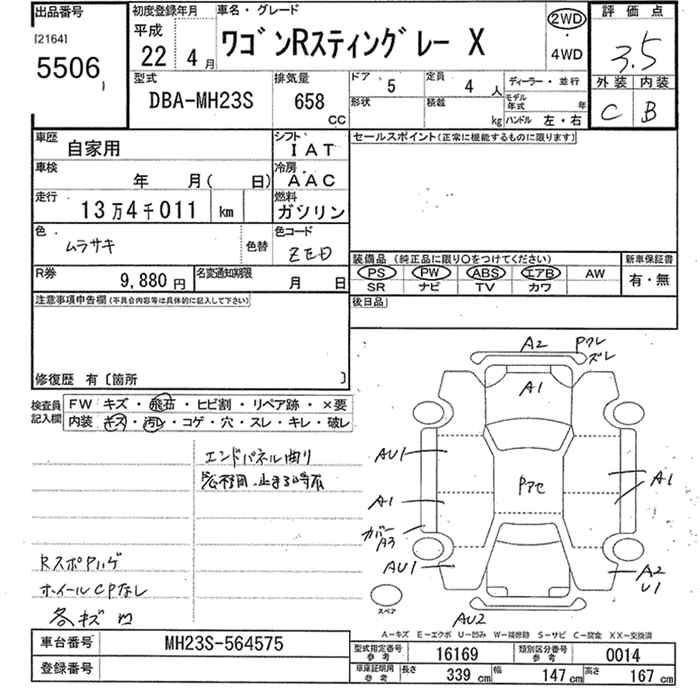 出品番号 初度登録年月 車名・グレード 評価点
[2164] 平成 2WD
5506 22年 4月 ワゴンRスティングレー X ・ 3.5
4WD
型式 排気量 ドア 5 定員 4人 ディーラー・並行 外装 内装
DBA-MH23S 658 形状 積載 モデル年式 年 C B
CC kg ハンドル 左・右
車歴 自家用 シフト IAT セールスポイント(正常に機能するものに限ります)
車検 年 月( 日) 冷房 AAC
走行 13万4千011 km 燃料 ガソリン
色 ムラサキ 色替 色コード ZED
装備品 (純正品に限り〇をつけてください) 新車保証書
R券 9,880円 名変通知期限 月 日 PS PW ABS エアB AW 有・無
SR ナビ TV カワ
注意事項申告欄(不具合内容等は具体的に記入して下さい) 後日品
修復歴 有〔箇所 〕
検査員記入欄 FW キズ・飛石・ヒビ割・リペア跡・×要
内装 キズ・汚レ・コゲ・穴・スレ・キレ・破レ
A2 Pクレ
ズレ
A1
エンドパネル曲り
AU1
Pアセ
A1 A1
カバー
A3
RスポPハゲ
AU1 A2
U1
ホイールCPなし
各キズ凹
スペア
AU2
A-キズ E-エクボ U-凹み W-補修跡 S-サビ C-腐食 XX-交換済
車台番号 MH23S-564575 型式指定番号 参考 16169 類別区分番号 参考 0014
登録番号 車庫証明用 参考 長さ 339cm 幅 147cm 高さ 167cm